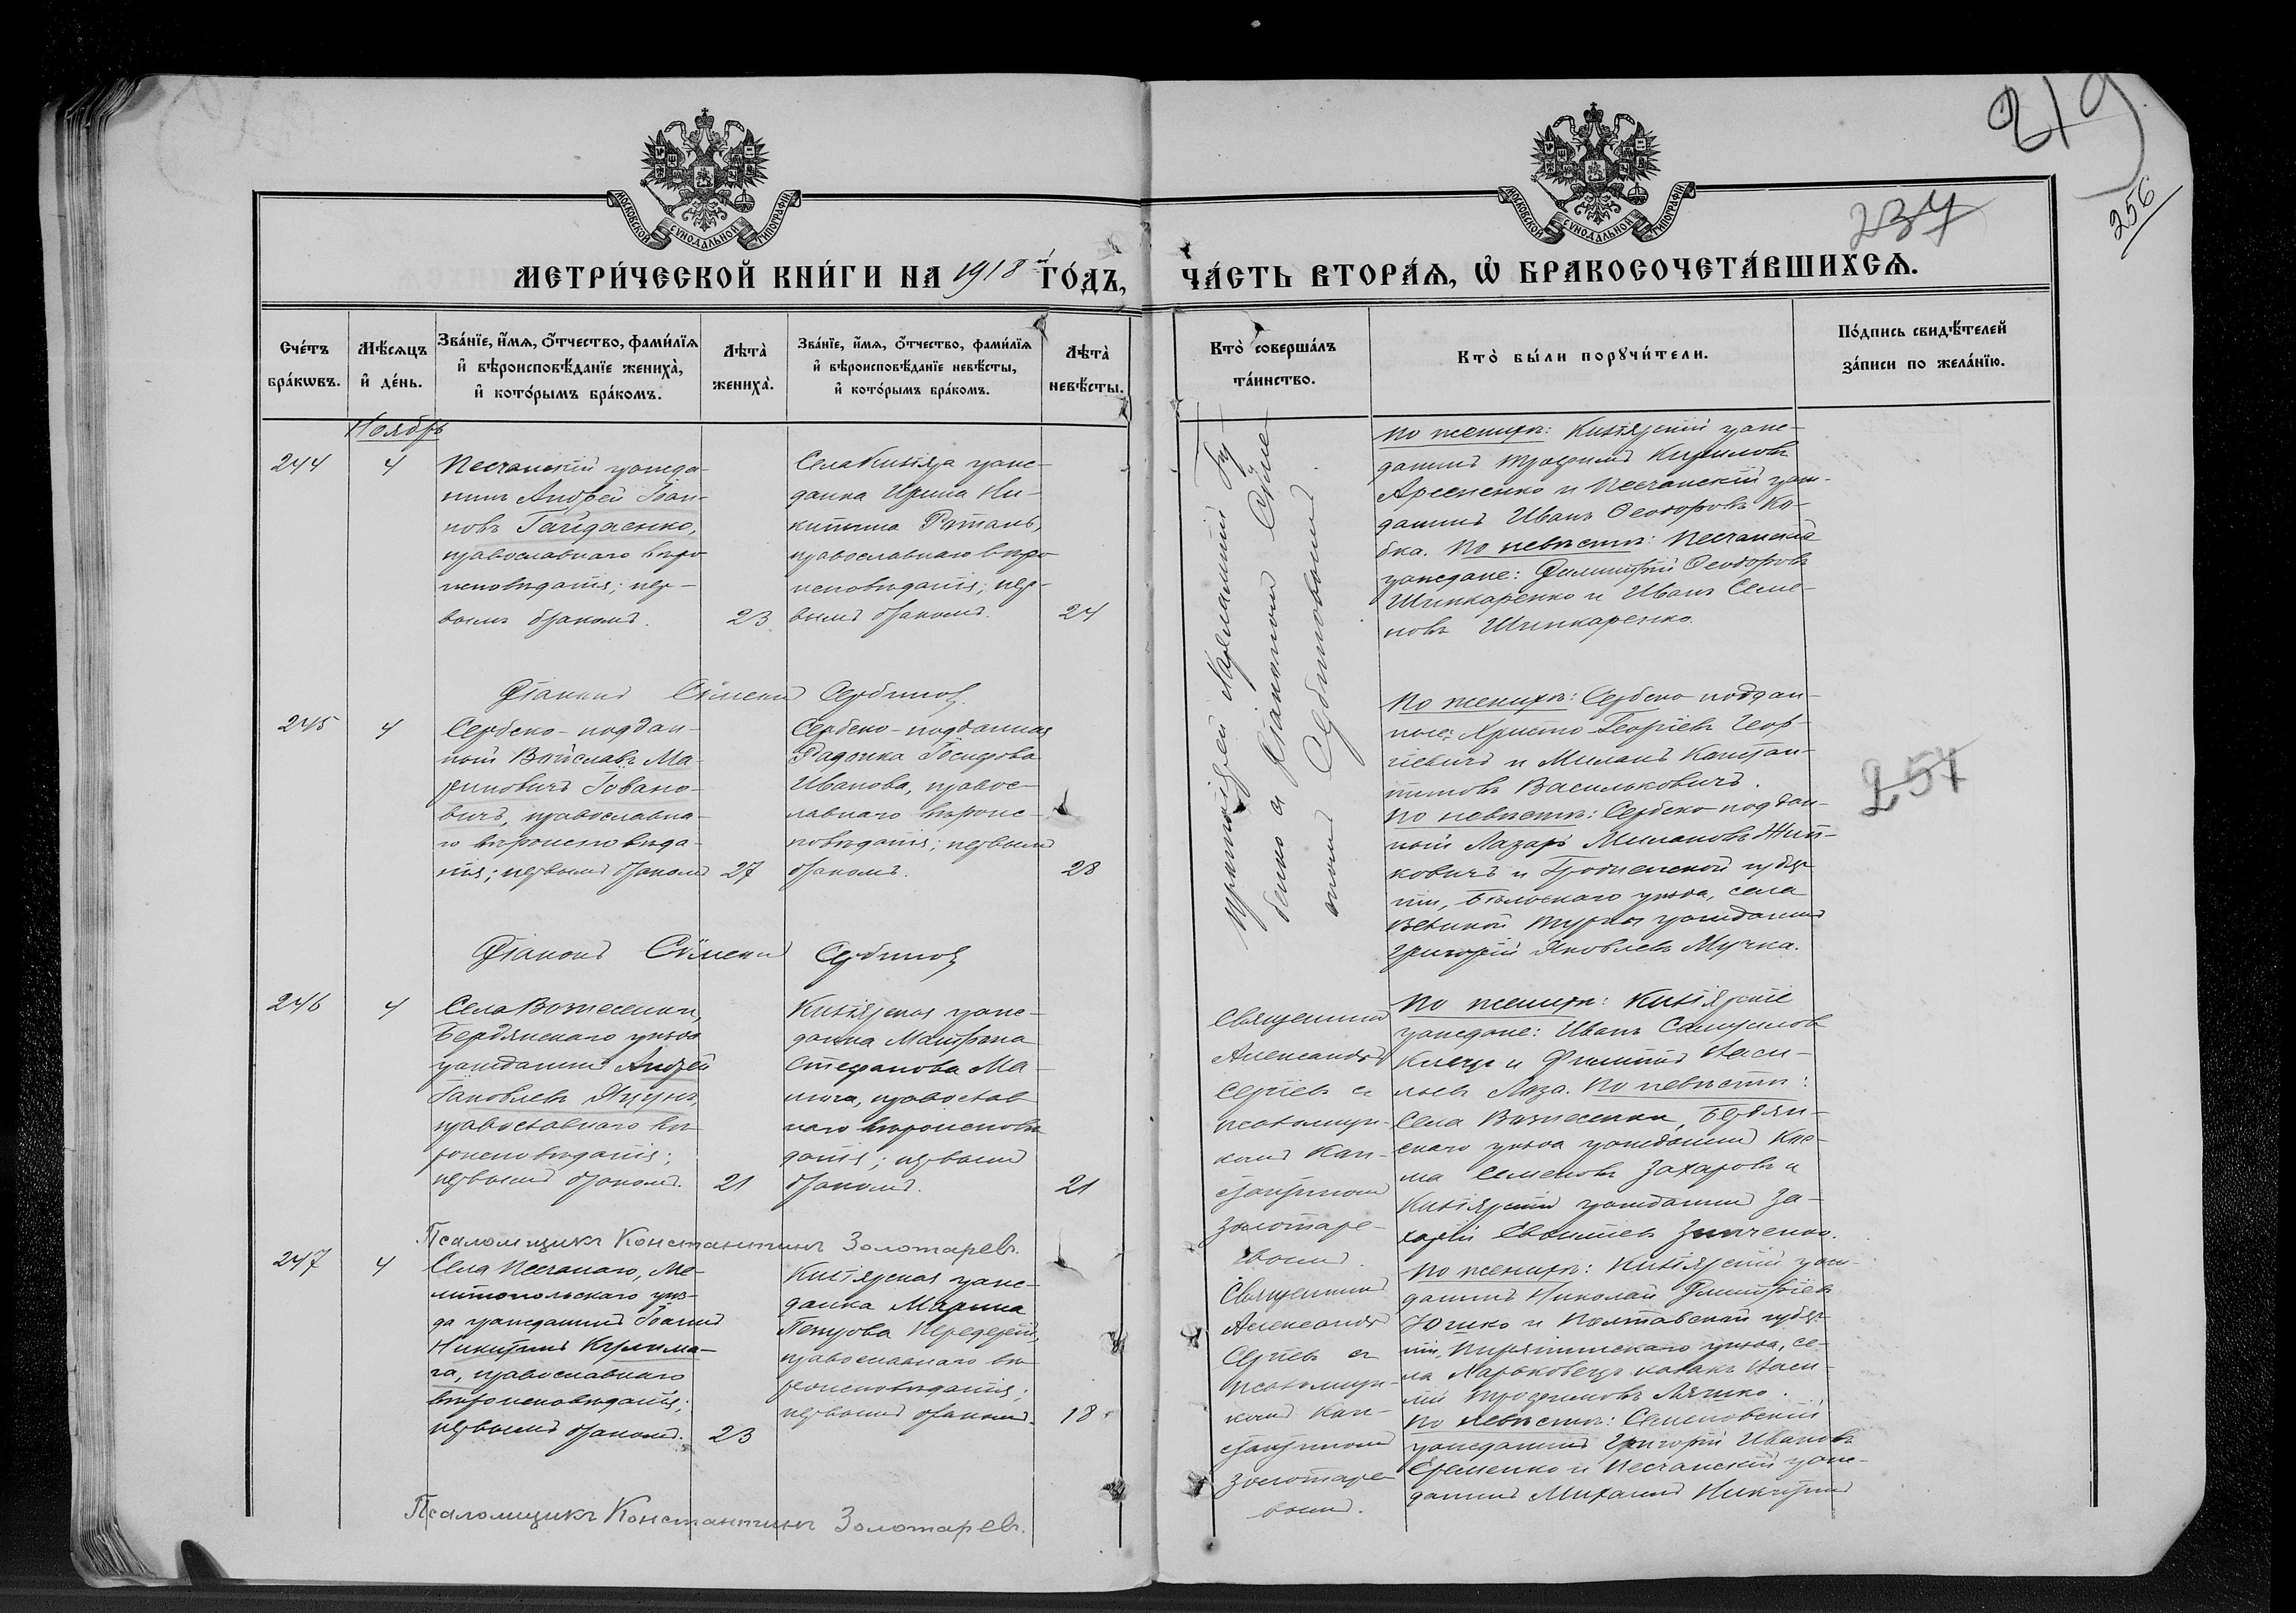 219
256
237
МОСКОВСКОЙ СѴНОДАЛЬНОЙ ТИПОГРАФІИ
МОСКОВСКОЙ СѴНОДАЛЬНОЙ ТИПОГРАФІИ
МЕТРИ́ЧЕСКОЙ КНИ́ГИ НА 1918й ГО́ДЪ,
ЧА́СТЬ ВТОРА́Я, Ѽ БРАКОСОЧЕТА́ВШИХСЯ.
Сче́тъ бра́кѡвъ.
Мѣ́сяцъ и҆ де́нь.
Зва́нїе, и҆́мя, ѻ҆́тчество, фами́лїя
и҆ вѣроисповѣ́данїе жениха̀,
и҆ кото́рымъ бра́комъ.
Лѣта̀ жениха̀.
Зва́нїе, и҆́мя, ѻ҆́тчество, фами́лїя
и҆ вѣроисповѣ́данїе невѣ́сты,
и҆ кото́рымъ бра́комъ.
Лѣта̀ невѣ́сты.
Кто̀ соверша́лъ
та́инство.
Кто̀ бы́ли порꙋчи́тели.
По́дпись свидѣ́телей
за́писи по жела́нїю.
Ноябрь
244
4
Песчанскій гражда-
нинъ Андрей Іоан-
новъ Гайдаенко,
православнаго веро
исповѣданія; пер-
вымъ бракомъ.
23
Села Кизіяра граж-
данка Ирина Ни-
китина Ротань,
православнаго веро
исповѣданія; пер-
вымъ бракомъ.
24
По женихѣ: Кизіярскій граж-
данинъ Трофимъ Кирилловъ
Арсененко и Песчанскій граж-
данинъ Иванъ Феодоровъ Ко-
бка. По невѣстѣ: Песчанскіе
граждане: Димитрій Феодоровъ
Шинкаренко и Иванъ Семе-
новъ Шинкаренко.
Діаконъ Сѵмеонъ Сербиновъ
245
4
Сербско-поддан-
ный Войславъ Ма-
риновичъ Іовано-
вичъ, православна-
го вѣроисповѣда-
нія; первымъ бракомъ
27
Сербско-подданная
Радойка Іосифова
Иванова, правос-
лавнаго вѣроис-
повѣданія; первымъ
бракомъ.
28
По женихѣ: Сербско-поддан-
ные: Христо Георгіевъ Геор-
гіевичъ и Миланъ Констан-
тиновъ Васильковичъ.
По невѣстѣ: Сербско-поддан-
ный Лазарь Милановъ Жив-
ковичъ и Гродненской губер-
ніи, Бѣльскаго уѣзда, села
гражданинъ
Григорій Яковлевъ Мучка.
257
Діаконъ Сѵмеонъ Сербиновъ
246
4
Села Вознесенки,
Бердянскаго уѣзда
гражданинъ Андрей
Іаковлевъ Яцунъ,
православнаго вѣ-
роисповѣданія;
первымъ бракомъ.
21
Кизіярская граж-
данка Матрона
Стефанова Ма-
православ
наго вѣроисповѣ
данія; первымъ
бракомъ.
21
Священникъ
Александръ
Сергіевъ съ
псаломщи-
комъ Кон-
стантиномъ
Золотаре-
вымъ.
По женихѣ: Кизіярскіе
граждане: Иванъ Самуиловъ
и Филиппъ Васи-
льевъ Лоза. По невѣстѣ:
Села Вознесенки, Бердян-
скаго уѣзда гражданинъ Кос-
ма Семеновъ Захаровъ и
Кизіярскій гражданинъ За-
харій Евфиміевъ Зинченко.
Псаломщикъ Константинъ Золотаревъ.
247
4
Села Песчанаго, Ме-
литопольскаго уѣз-
да гражданинъ Іоаннъ
Никитинъ Кулима-
га, православнаго
вѣроисповѣданія;
первымъ бракомъ.
23
Кизіярская граж-
данка Марина
Петрова Передерій,
православнаго вѣ-
роисповѣданія;
первымъ бракомъ.
18
Священникъ
Александръ
Сергіевъ съ
псаломщи-
комъ Кон-
стантиномъ
Золотаре
вымъ.
По женихѣ: Кизіярскій граж-
данинъ Николай Димитріевъ
Юшко и Полтавской губер-
ніи, Пирятинскаго уѣзда, се-
ла Харьковецъ казакъ Васи-
лій Трофимовъ Ляшко.
По невѣстѣ: Семеновскій
гражданинъ Григорій Ивановъ
Еременко и Песчанскій граж-
данинъ Михаилъ Никитинъ
Псаломщикъ Константинъ Золотаревъ.